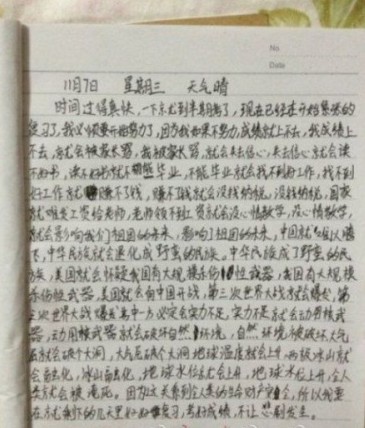 No
Date
11月7日 星期三 天气晴
时间过得真快，一下就到半期考了，现在已经进开始紧张的
复习了，我必须要开始努力了，因为我如果不努力，成绩就上不去，我成绩上
不去，就会被家长骂，我被家长骂，就会失去信心，失去信心就会读
不好书，读不好书就不能毕业，不能毕业就会找不到好工作，找不到
好工作就赚不了钱，赚不了钱就会没钱纳税，没钱纳税，国家
就难发工资给老师，老师领不到工资就会没心情教学，没心情教学，
就会影响我们祖国的未来，影响了祖国的未来，中国就难以腾
飞，中华民族就会退化成野蛮的民族，中华民族成了野蛮的民
族，美国就会怀疑我国有大规模杀伤性武器，我国有大规模
杀伤性武器，美国就会向中国开战，第三次世界大战就会爆发，第
三次世界大战爆发其中一方必定会实力不足，实力不足就会动用核武
器，动用核武器就会破坏自然环境，自然环境被破坏，大气
层就会破个大洞，大气层破个大洞地球温度就会上升，两极冰山就
会融化，冰山融化，地球水位就会上升，地球水位上升，全人
类就会被淹死。因为这关系到全人类的生命财产安全，所以我要
在就剩下的几天里好好复习，考好成绩，不让悲剧发生。